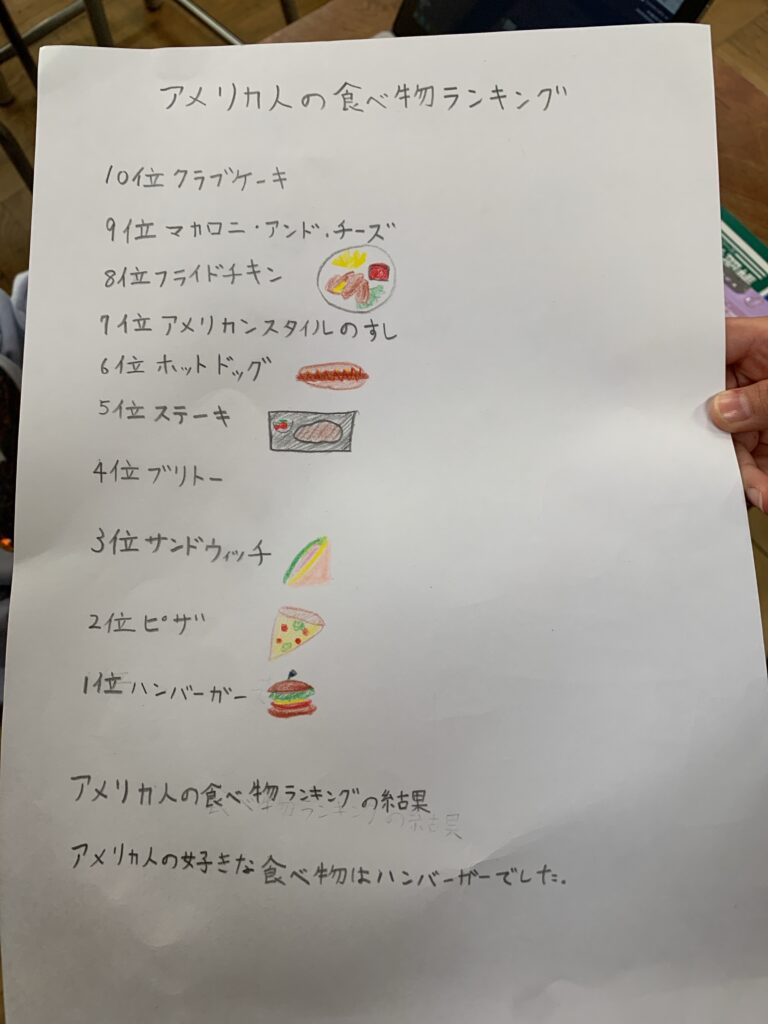 アメリカ人の食べ物ランキング
10位 クラブケーキ
9位 マカロニ・アンド・チーズ
8位 フライドチキン
7位 アメリカンスタイルのすし
6位 ホットドッグ
5位 ステーキ
4位 ブリトー
3位 サンドウィッチ
2位 ピザ
1位 ハンバーガー
アメリカ人の食べ物ランキングの結果
アメリカ人の好きな食べ物はハンバーガーでした.